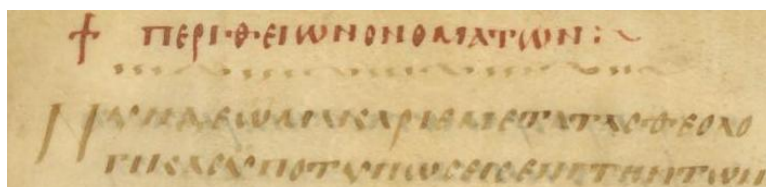 † ΠΕΡΙ·Θ·ΕΙΩΝΟΝΟΜΑΤΩΝ:~
ΝΥΝΔΕΩΜΑΚΑΡΙΕΜΕΤΑΤΑϹΘΕΟΛΟ
ΓΙΚΑϹΥΠΟΤΥΠΩϹΕΙϹΕΠΙΤΗΝΤΩΝ